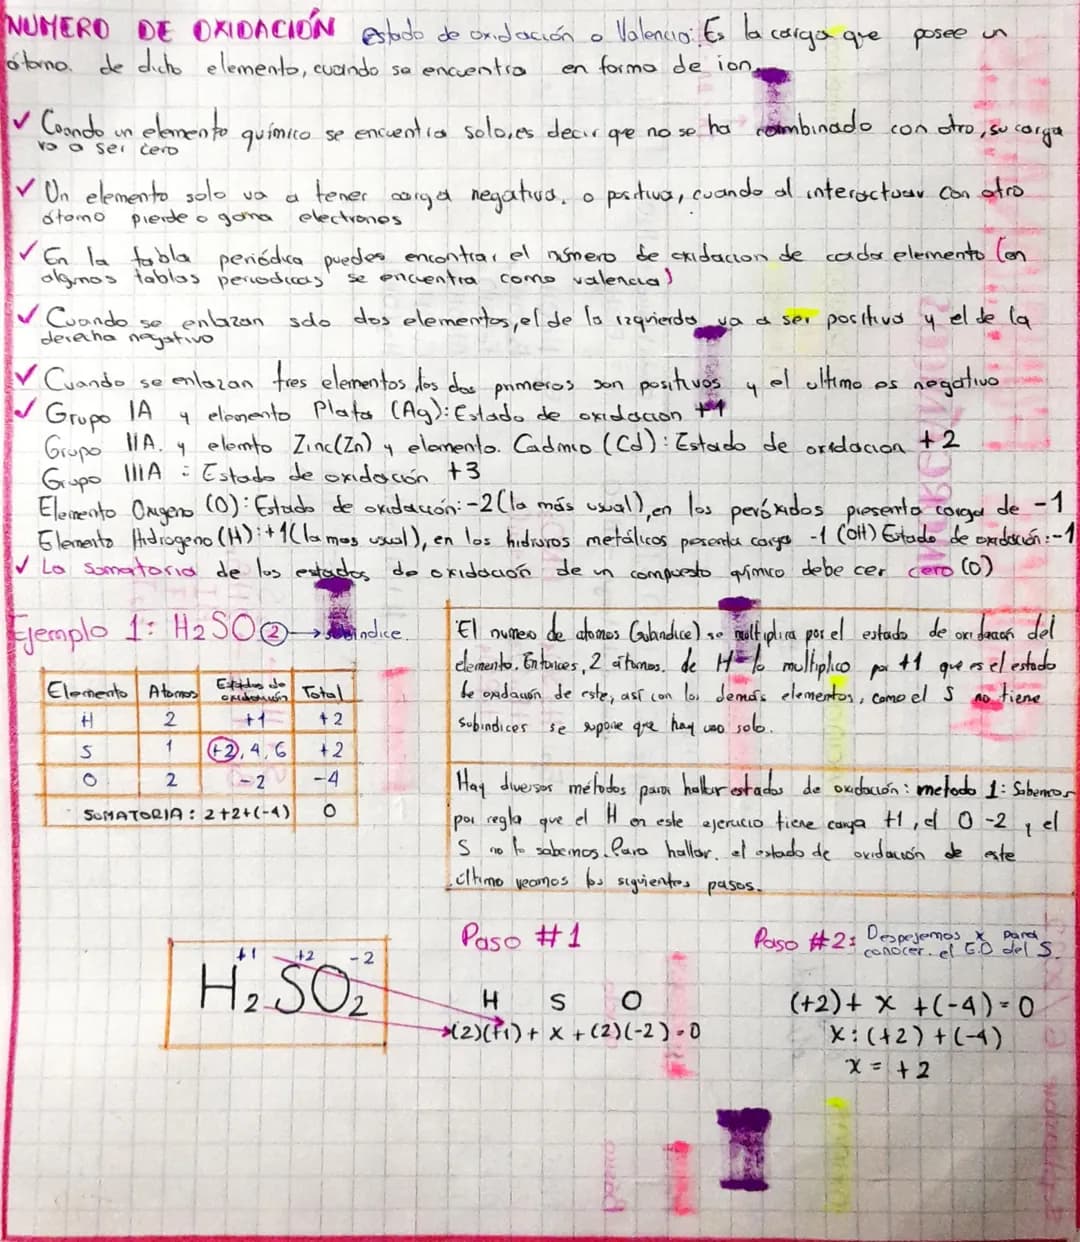 NUMERO DE OXIDACIÓN estado de oxidación o Valencia: Es la carga que posee un
átomo. de dicho elemento, cuando se encuentra en forma de ion.
✓ Cuando un elemento químico se encuentra solo, es decir que no se ha combinado con otro, su carga
va a ser cero
✓ Un elemento solo va a tener carga negativa, o positiva, cuando al interactuar con otro
átomo pierde o gana electrones
✓ En la tabla periódica puedes encontrar el número de oxidacion de cada elemento (en
algunos tablas periodicas se encuentra como valencia)
✓ Cuando se enlazan solo dos elementos, el de la izquierda va a ser positivo y el de la
derecha negativo
✓ Cuando se enlazan tres elementos los dos primeros son positivos y el ultimo es negativo
✓ Grupo IA y elemento Plata (Ag): Estado de oxidacion +1
Grupo IIA. y elemto Zinc(Zn) y elemento. Cadmio (Cd): Estado de oxidacion +2
Grupo IIIA : Estado de oxidación +3
Elemento Oxigeno (O): Estado de oxidación: -2 (la más usual), en los peróxidos presenta carga de -1
Elemento Hidrogeno (H): +1 (la mas usual), en los hidruros metálicos presenta carga -1 (OH) Estado de oxidación: -1
✓ La somatoria de los estados de oxidación de un compuesto químico debe cer cero (0)
Ejemplo 1: H2SO2 → subindice.
Elemento Atomos Estados de oxidación Total
H 2 +1 +2
S 1 +2, 4, 6 +2
O 2 -2 -4
SUMATORIA: 2+2+(-4) 0
El numero de atomos (subindice) se multiplica por el estado de oxidación del
elemento. Entonces, 2 átomos. de H lo multiplico por +1 que es el estado
de oxidación de este, así con los demás elementos, como el S no tiene
subindices se supone que hay uno solo.
Hay diversos métodos para hallar estados de oxidación: metodo 1: Sabemos
por regla que el H en este ejercicio tiene carga +1, el O -2 y el
S no lo sabemos. Para hallar. el estado de oxidación de este
último veamos los siguientes pasos.
+1 +2 -2
H2SO2
Paso #1
H S O
(2)(+1) + x + (2)(-2) = 0
Paso #2: Despejemos x para
conocer. el E.O del S.
(+2) + x + (-4) = 0
x: (+2) + (-4)
x = +2